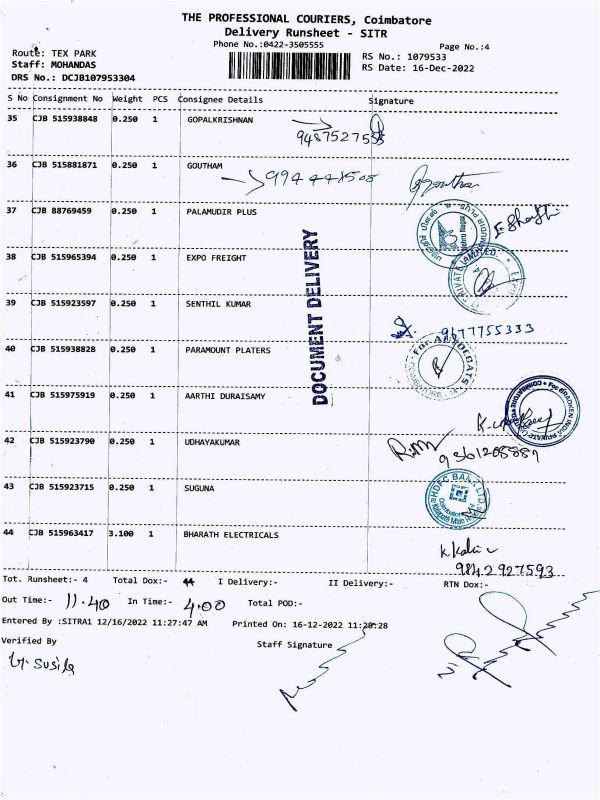 THE PROFESSIONAL COURIERS, Coimbatore
Delivery Runsheet - SITR
Phone No.:0422-3505555
Page No.:4
Route: TEX PARK
Staff: MOHANDAS
DRS No.: DCJB107953304
RS No.: 1079533
RS Date: 16-Dec-2022
S No Consignment No Weight PCS Consignee Details Signature
35 CJB 515938848 0.250 1 GOPALKRISHNAN
9487527555
36 CJB 515881871 0.250 1 GOUTHAM
37 CJB 88769459 0.250 1 PALAMUDIR PLUS
38 CJB 515965394 0.250 1 EXPO FREIGHT
DOCUMENT DELIVERY
39 CJB 515923597 0.250 1 SENTHIL KUMAR
9677755333
40 CJB 515938828 0.250 1 PARAMOUNT PLATERS
41 CJB 515975919 0.250 1 AARTHI DURAISAMY
42 CJB 515923790 0.250 1 UDHAYAKUMAR
43 CJB 515923715 0.250 1 SUGUNA
HDFC BANK LTD.
44 CJB 515963417 3.100 1 BHARATH ELECTRICALS
9842927593
Tot. Runsheet:- 4 Total Dox:- 44 I Delivery:- II Delivery:- RTN Dox:-
Out Time:- 11.40 In Time:- 4.00 Total POD:-
Entered By :SITRA1 12/16/2022 11:27:47 AM Printed On: 16-12-2022 11:28:28
Verified By Staff Signature